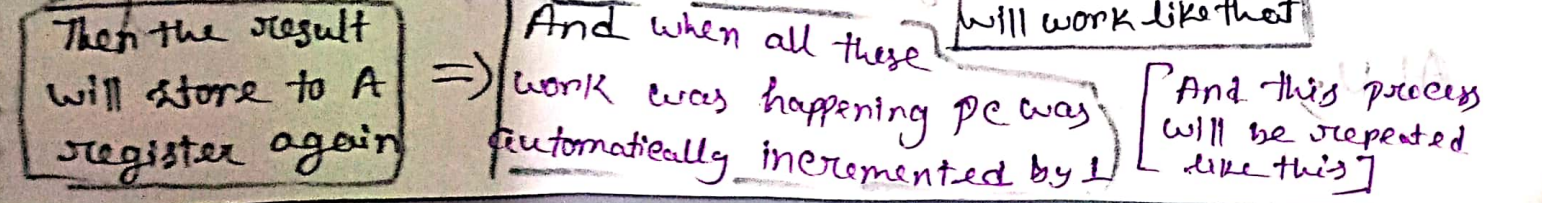 Then the result
will store to A
register again
=>
And when all these
work was happening pc was
automatically incremented by 1
will work like that
[And this process
will be repeated
like this]